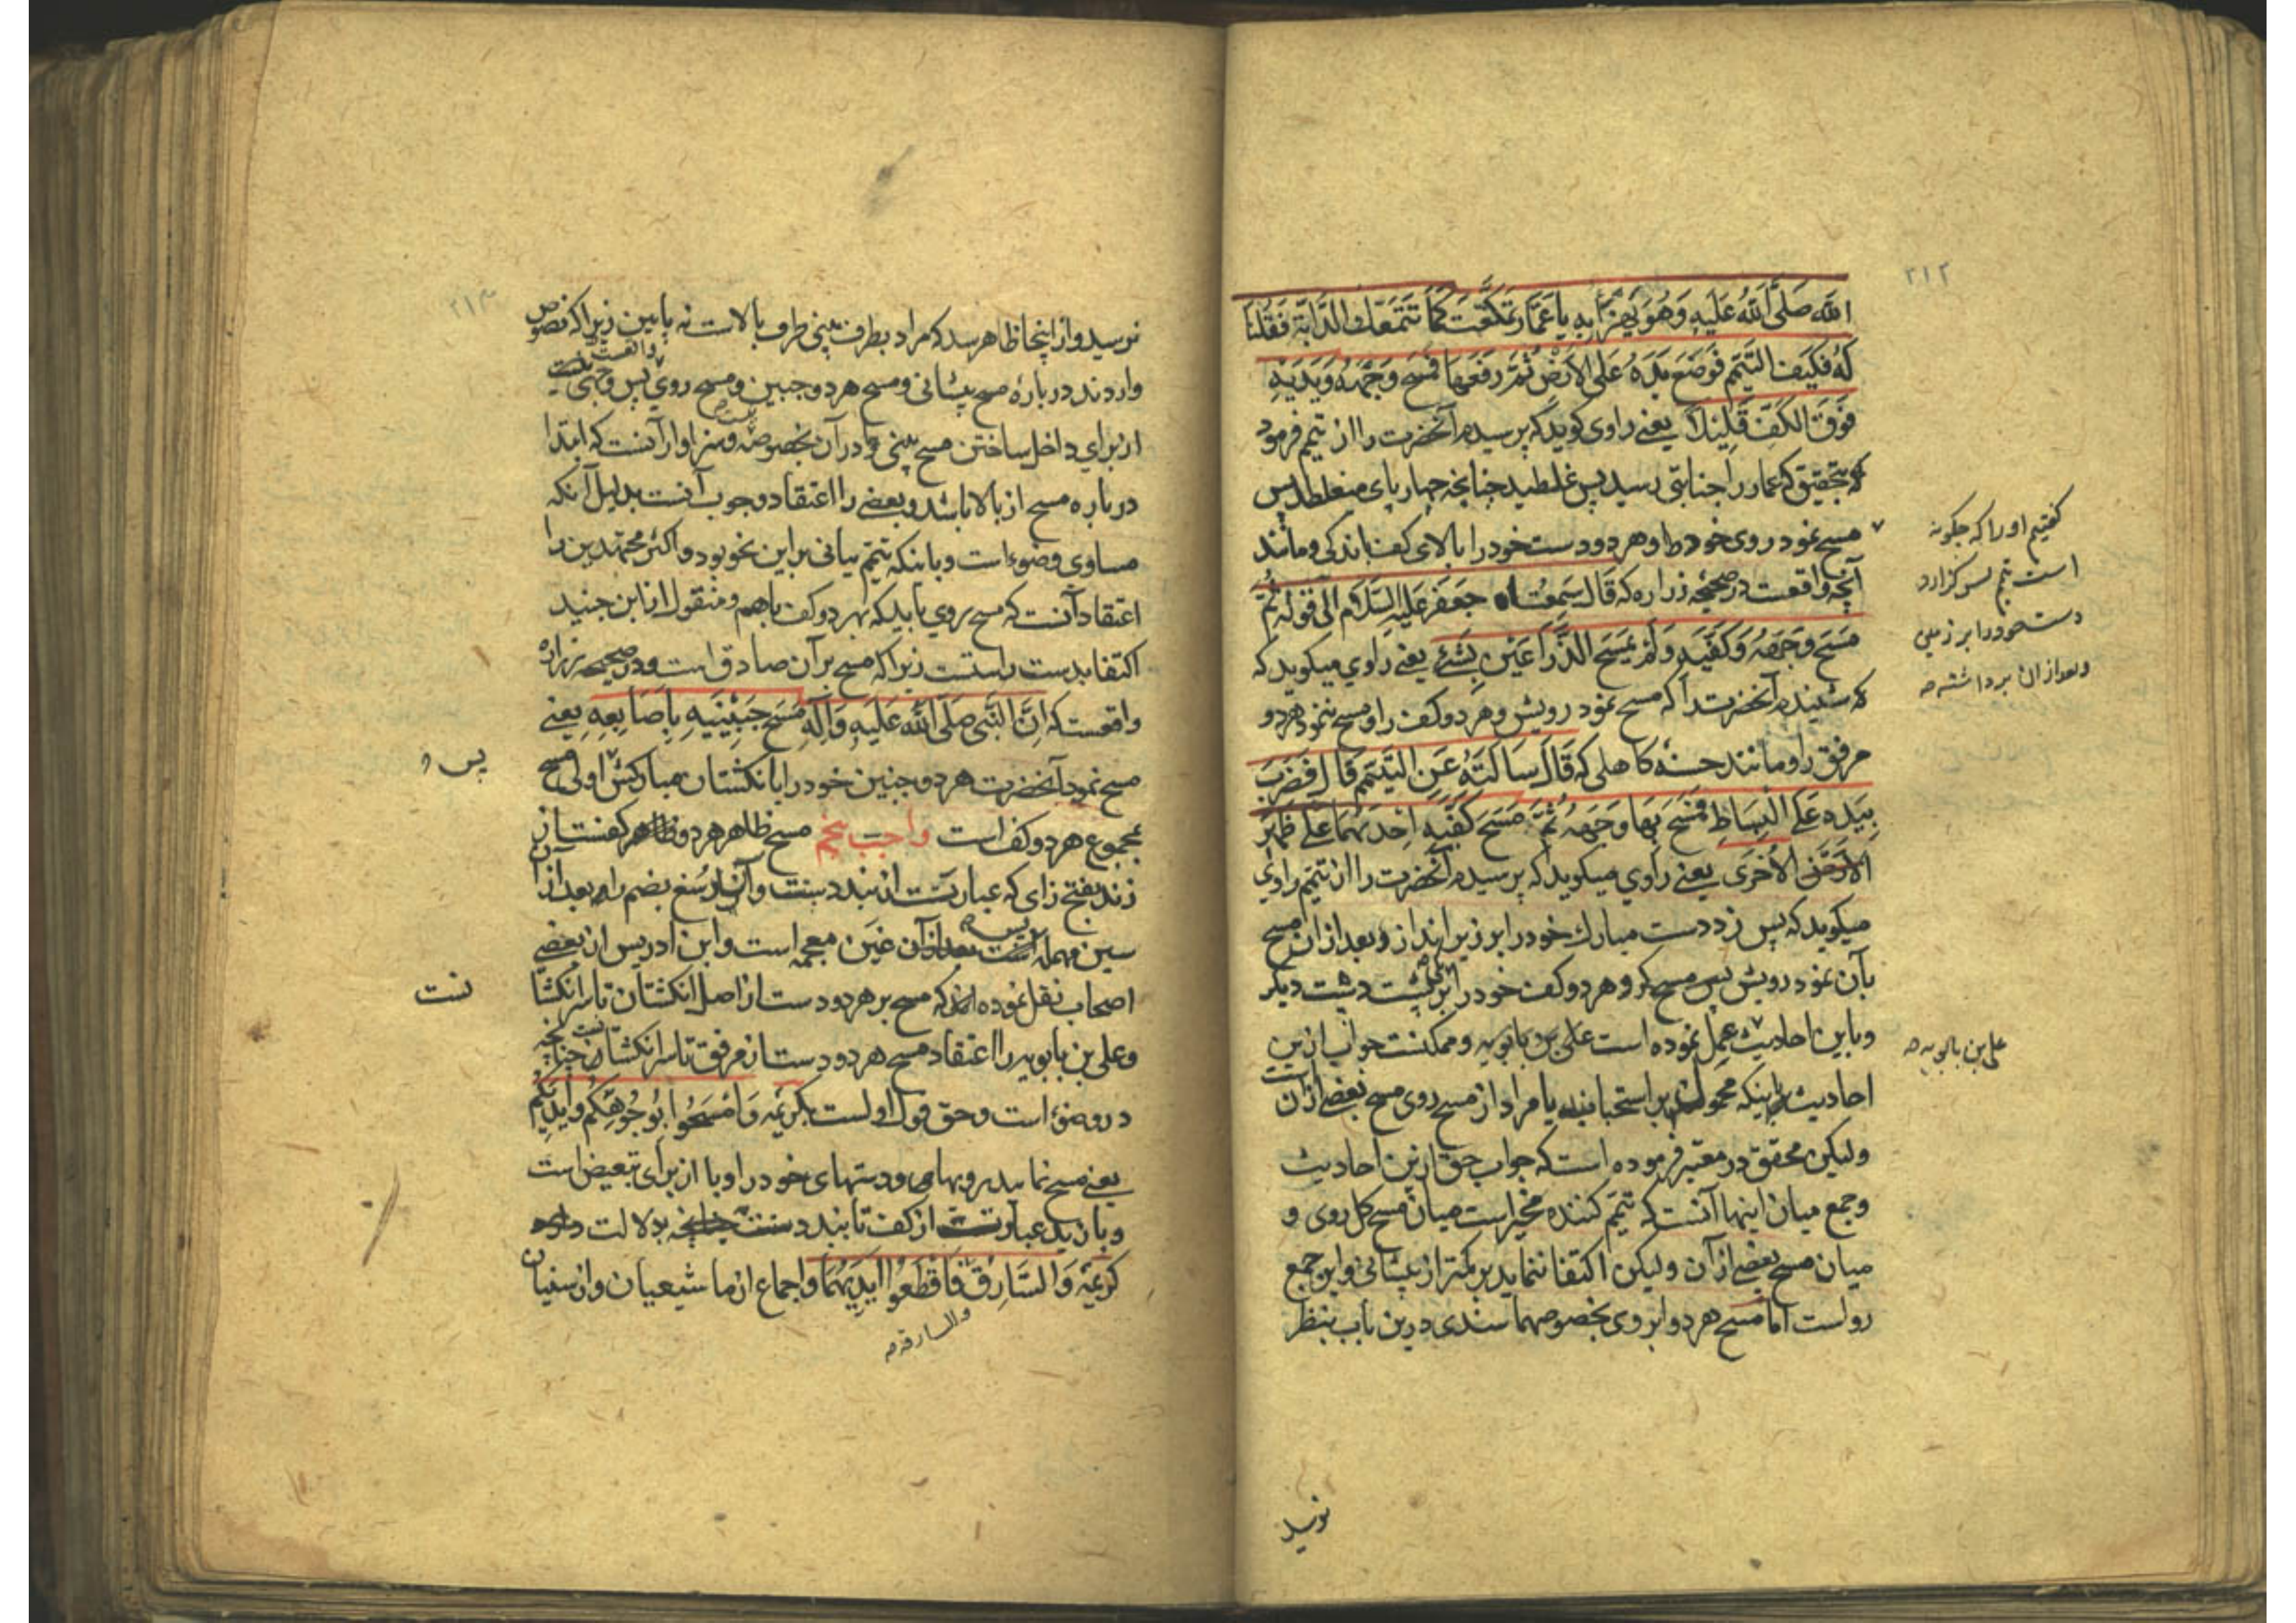 ۲۱۲
الله صَلَّی اللهُ عَلَیهِ وَهُوَ یَهزَأُ بِهِ یا عَمّار تَمَعَّکتَ کَمَا تَتَمَعَّكُ الدَّابَّة فَقُلنَا
لَهُ فَکَیفَ التَّیَمّم فَوَضَعَ یَدَهُ عَلَی الاَرضِ ثُمَّ رَفَعَهَا فَمَسَحَ وَجهَهُ وَیَدَیهِ
فَوقَ الکَفّ قَلِیلاً یعنے راوی کوید که پرسیدم آنحضرت را از تیمم فرمود
که بتحقیق که عمار را جنابتی رسید پس غلطید چنانچه چهارپای میغلطد پس
مسح نمود روی خود را و هر دو دست خود را بالای کف باندکی و مانند
آنچه واقعست در صحیحه زراره که قَالَ سَمِعتُ جَعفَر عَلَیهِ السَّلام الی قوله ثُمَّ
مَسَحَ وَجهَهُ وَکَفَّیهِ وَلَم یَمسَح الذّراعَینِ بِشَئ یعنے راوی میکوید که
که شنیدم آنحضرت را که مسح نمود رویش و هر دو کف را و مسح ننمود هر دو
مرفق را و مانند حسنهٔ کاهلی که قَالَ سَاَلتُهُ عَنِ التَّیَمّم قَالَ فَضَرَبَ
بِیَدِه عَلَی البِسَاطِ فَمَسَحَ بِهَا وَجهَهُ ثُمَّ مَسَحَ کَفَّیهِ اِحدَیهُمَا عَلَی ظَهرِ
الاُخرَی یعنے راوی میکوید که پرسیدم آنحضرت را از تیمم راوی
میکوید که پس زد دست مبارك خود را بر زیرانداز و بعد از آن مسح
بآن نمود رویش پس مسح کرد هر دو کف خود را بر پشت دیکر
وباین احادیث عمل نموده است علی بن بابویه و ممکنست جواب ازین
احادیث باینکه محمولست بر استحباب یا مراد از مسح روی مسح بعضے از آن است
ولیکن محقق در معتبر فرموده است که جواب حق ازین احادیث
وجمع میان اینها آنست که تیمم کننده مخیر است میان مسح کل روی و
میان مسح بعضے از آن ولیکن اکتفا ننماید بر کمتر از پیشانی و این جمع
رواست اما مسح هر دو ابروی بخصوصهما سندی درین باب بنظر
کفتیم او را که چکونه
است تیمم پس کزارد
دست خود را بر زمین
و بعد از آن برداشته صح
علی بن بابویه صح
نرسید
۲۱۳
نرسید و از اینجا ظاهر شد که مراد بطرف بینی طرف بالاست نه پایین زیرا که نصوص
واردند درباره مسح پیشانی و مسح هر دو جبین و مسح روی پس وجهی نیست
از برای داخل ساختن مسح بینی در آن بخصوصه و سزاوار آنست که ابتدا
درباره مسح از بالا باشد و بعضے را اعتقاد وجوب آنست بدلیل آنکه
مساوی وضوء است و باینکه تیمم بیانی براین نحو بود و اکثر مجتهدین را
اعتقاد آنست که مسح روی باید که بهر دو کف باهم و منقول از ابن جنید
اکتفا بدست راستست زیرا که مسح بر آن صادق است و در صحیحه زراره
واقعست که اِنَّ النَّبِی صَلَّی اللهُ عَلَیهِ وَآلِهِ مَسَحَ جَبِینَیهِ بِاَصَابِعِهِ یعنے
مسح نمود آنحضرت هر دو جبین خود را بانکشتان مبارکش و اولی مسح
بمجموع هر دو کف است واجب پنجم مسح ظاهر هر دو کفست از
زند بفتح زای که عبارتست از بند دست و آنرا رسغ بضم راء بعد از آن
سین مهمله پس غین معجمه است و ابن ادریس از بعضے
اصحاب نقل نموده که مسح بر هر دو دست از اصل انکشتان تا سر انکشتا
وعلی بن بابویه را اعتقاد مسح هر دو دست از مرفق تا سر انکشتانست چنانچه
در وضوء است و حق قول اولست بکریمه وَامسَحُوا بِوُجُوهِکُم وَاَیدِیکُم
یعنے مسح نمایید رویها و دستهای خود را و با از برای تبعیض است
کریمهٔ وَالسَّارِقُ فَاقطَعُوا اَیدِیَهُمَا و اجماع از ما شیعیان و از سنیان
پس و
نست
والسارقة صح